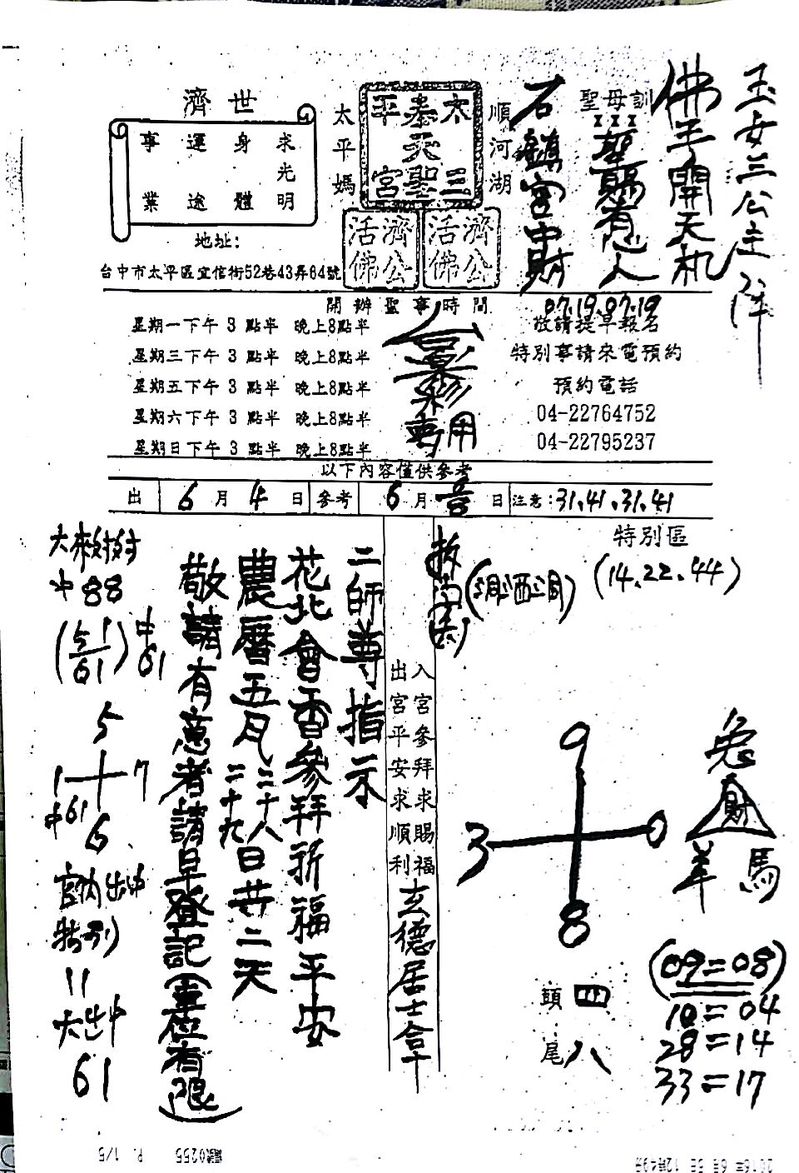 玉女三公主降
佛手開天机
聖母訓
聖賜有心人
石鎮宮中財
07.19.07.19
順河湖
太平媽
太三
泰天聖
平宮
濟公活佛
濟公活佛
世濟
求光明
身體
運途
事業
地址:
台中市太平區宜信街52巷43弄64號
開辦聖事時間
星期一下午 3 點半 晚上8點半
星期三下午 3 點半 晚上8點半
星期五下午 3 點半 晚上8點半
星期六下午 3 點半 晚上8點半
星期日下午 3 點半 晚上8點半
合彩專用
敬請提早報名
特別事請來電預約
預約電話
04-22764752
04-22795237
以下內容僅供參考
出 6 月 4 日 參考 6 月 日 注意:31.41.31.41
特別區
(14.22.44)
9
3 0
8
兔
財
羊 馬
(09=08)
10=04
28=14
33=17
頭 四
尾 八
入宮參拜求賜福
出宮平安求順利
玄德居士拿
二師尊指示
花北會香參拜祈福平安
農曆五月二十八二十九日共二天
敬請有意者請早登記(車位有限)
88
(51/61)
中61
5
1 7
6
中61
宮內出中
特別
大出中
61
2016年 6月 5日 12時49分
編號0255 P. 1/5